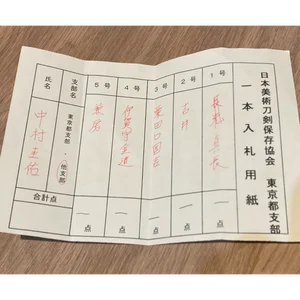 日本美術刀剣保存協会 東京都支部
一本入札用紙
1号
一点
2号
一点
3号
粟田口国吉
一点
4号
伊賀守金道
一点
5号
一点
支部名
東京都支部・他支部
氏名
中村圭佑
合計点